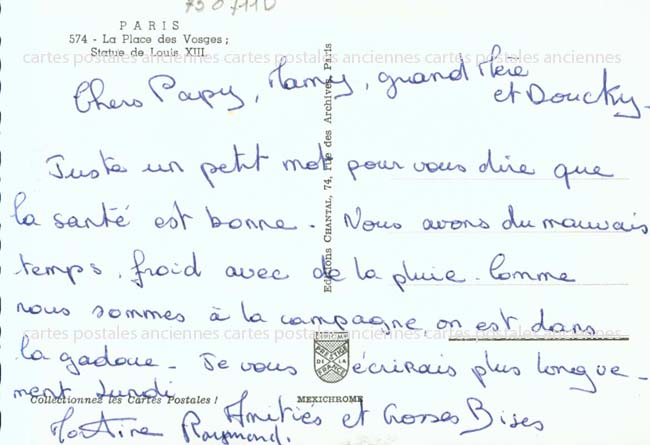 750711D
PARIS
574 - La Place des Vosges ;
Statue de Louis XIII
cartes postales anciennes cartes postales anciennes cartes postales anciennes
Chers Papy, Mamy, grand Mère
et Doucky.
Juste un petit mot pour vous dire que
la santé est bonne. Nous avons du mauvais
temps, froid avec de la pluie. Comme
nous sommes à la campagne, on est dans
cartes postales anciennes cartes postales anciennes cartes postales anciennes
la gadoue. Je vous écrirais plus longue-
ment Lundi
Amitiés et Grosses Bises
Raymond.
Editions CHANTAL, 74, rue des Archives, Paris
Collectionnez les Cartes Postales !
MEXICHROME